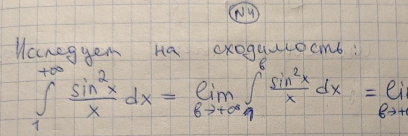 №4
Исследуем на сходимость:
+∞∫1 sin²x/x dx = lim b→+∞ b∫1 sin²x/x dx = li